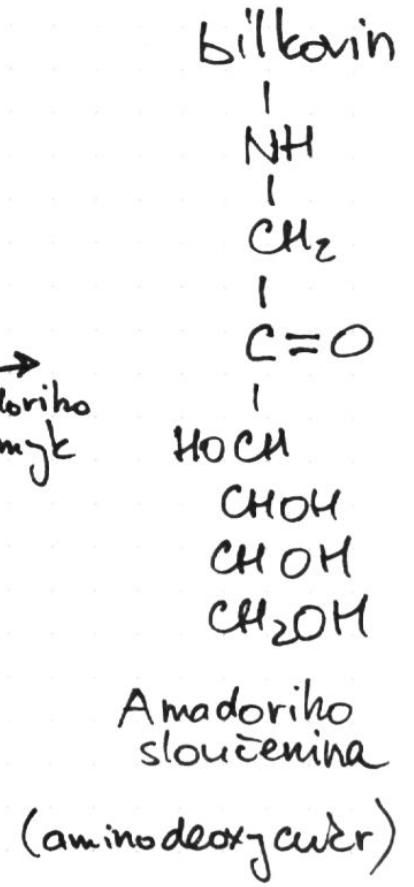 bílkovin
NH
CH₂
C=O
HOCH
CHOH
CHOH
CH₂OH
Amadoriho
sloučenina
(aminodeoxycukr)